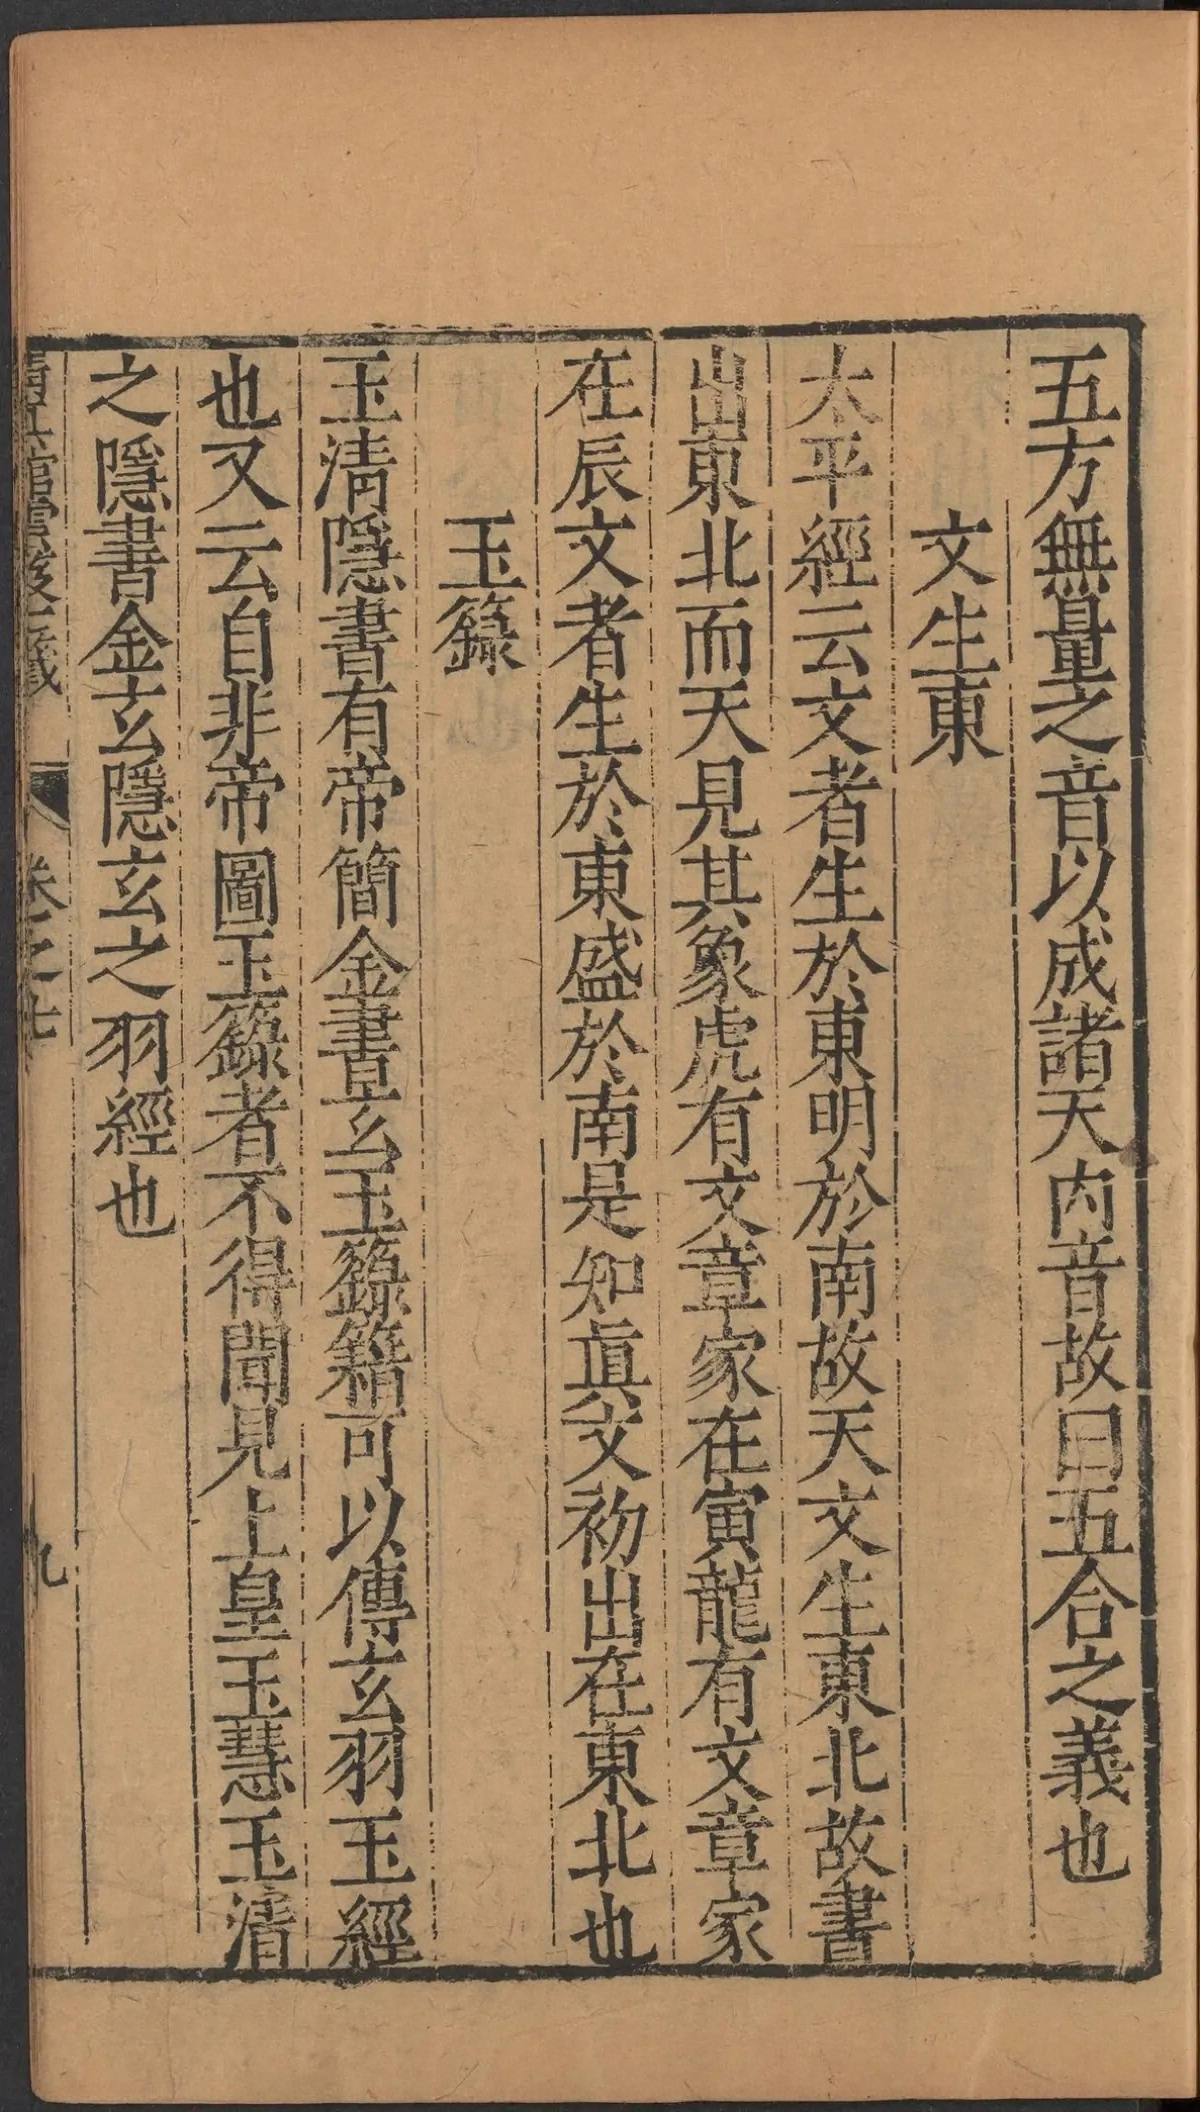 五方無量之音以成諸天內音故曰五合之義也
文生東
太平經云文者生於東明於南故天文生東北故書
出東北而天見其象虎有文章家在寅龍有文章家
在辰文者生於東盛於南是知眞文初出在東北也
玉籙
玉清隱書有帝簡金書玄玉籙籍可以傳玄羽玉經
也又云自非帝圖玉籙者不得聞見上皇玉慧玉清
之隱書金玄隱玄之羽經也
卷之七
九